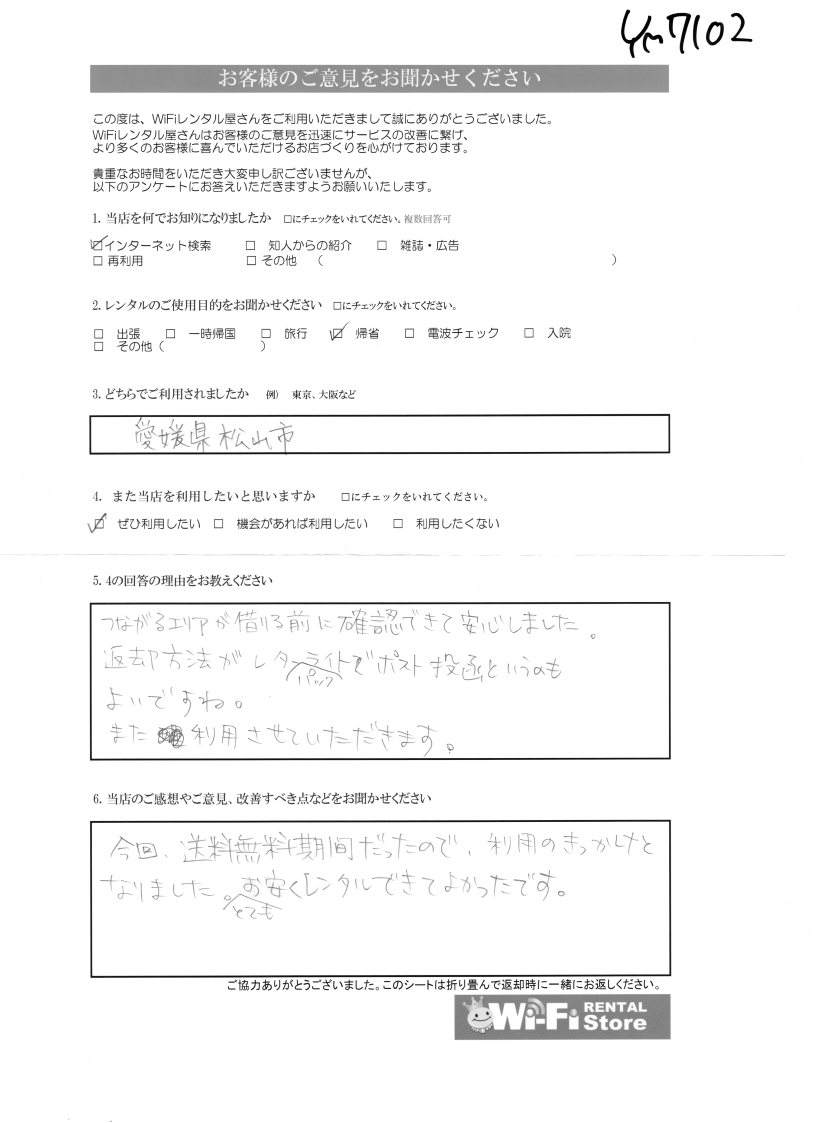 Ym7102
お客様のご意見をお聞かせください
この度は、WiFiレンタル屋さんをご利用いただきまして誠にありがとうございました。
WiFiレンタル屋さんはお客様のご意見を迅速にサービスの改善に繋げ、
より多くのお客様に喜んでいただけるお店づくりを心がけております。
貴重なお時間をいただき大変申し訳ございませんが、
以下のアンケートにお答えいただきますようお願いいたします。
1. 当店を何でお知りになりましたか □にチェックをいれてください。複数回答可
☑インターネット検索 □ 知人からの紹介 □ 雑誌・広告
□ 再利用 □ その他 （ ）
2. レンタルのご使用目的をお聞かせください □にチェックをいれてください。
□ 出張 □ 一時帰国 □ 旅行 ☑ 帰省 □ 電波チェック □ 入院
□ その他（ ）
3. どちらでご利用されましたか 例） 東京、大阪など
愛媛県松山市
4. また当店を利用したいと思いますか □にチェックをいれてください。
☑ ぜひ利用したい □ 機会があれば利用したい □ 利用したくない
5. 4の回答の理由をお教えください
つながるエリアが借りる前に確認できて安心しました。
返却方法がレターパックライトでポスト投函というのも
よいですね。
また利用させていただきます。
6. 当店のご感想やご意見、改善すべき点などをお聞かせください
今回、送料無料期間だったので、利用のきっかけと
なりました。とてもお安くレンタルできてよかったです。
ご協力ありがとうございました。このシートは折り畳んで返却時に一緒にお返しください。
Wi-Fi RENTAL Store